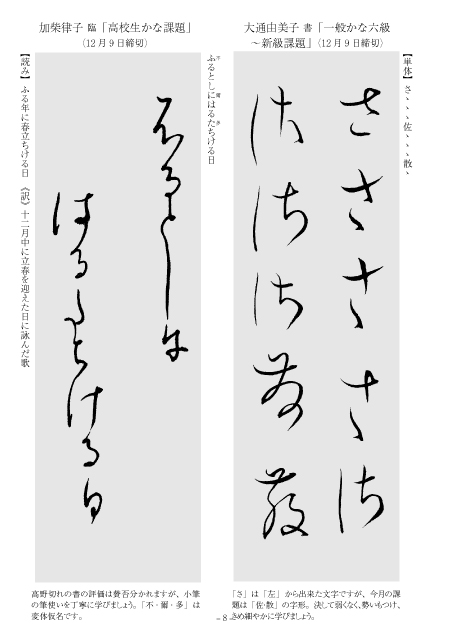 大通由美子 書「一般かな六級
～新級課題」（12月9日締切）
【単体】さ、、、、佐、、、散、
さささささ佐
佐佐佐散散
「さ」は「左」から出来た文字ですが、今月の課
題は「佐・散」の字形。決して弱くなく、勢いもつけ、
きめ細やかに学びましょう。
加柴律子 臨「高校生かな課題」
（12月9日締切）
ふるとしにはるたちける日
不 爾 多
不るとし尓
はる多ちける日
【読み】ふる年に春立ちける日 《訳》十二月中に立春を迎えた日に詠んだ歌
高野切れの書の評価は賛否分かれますが、小筆
の筆使いを丁寧に学びましょう。「不・爾・多」は
変体仮名です。
- 8 -